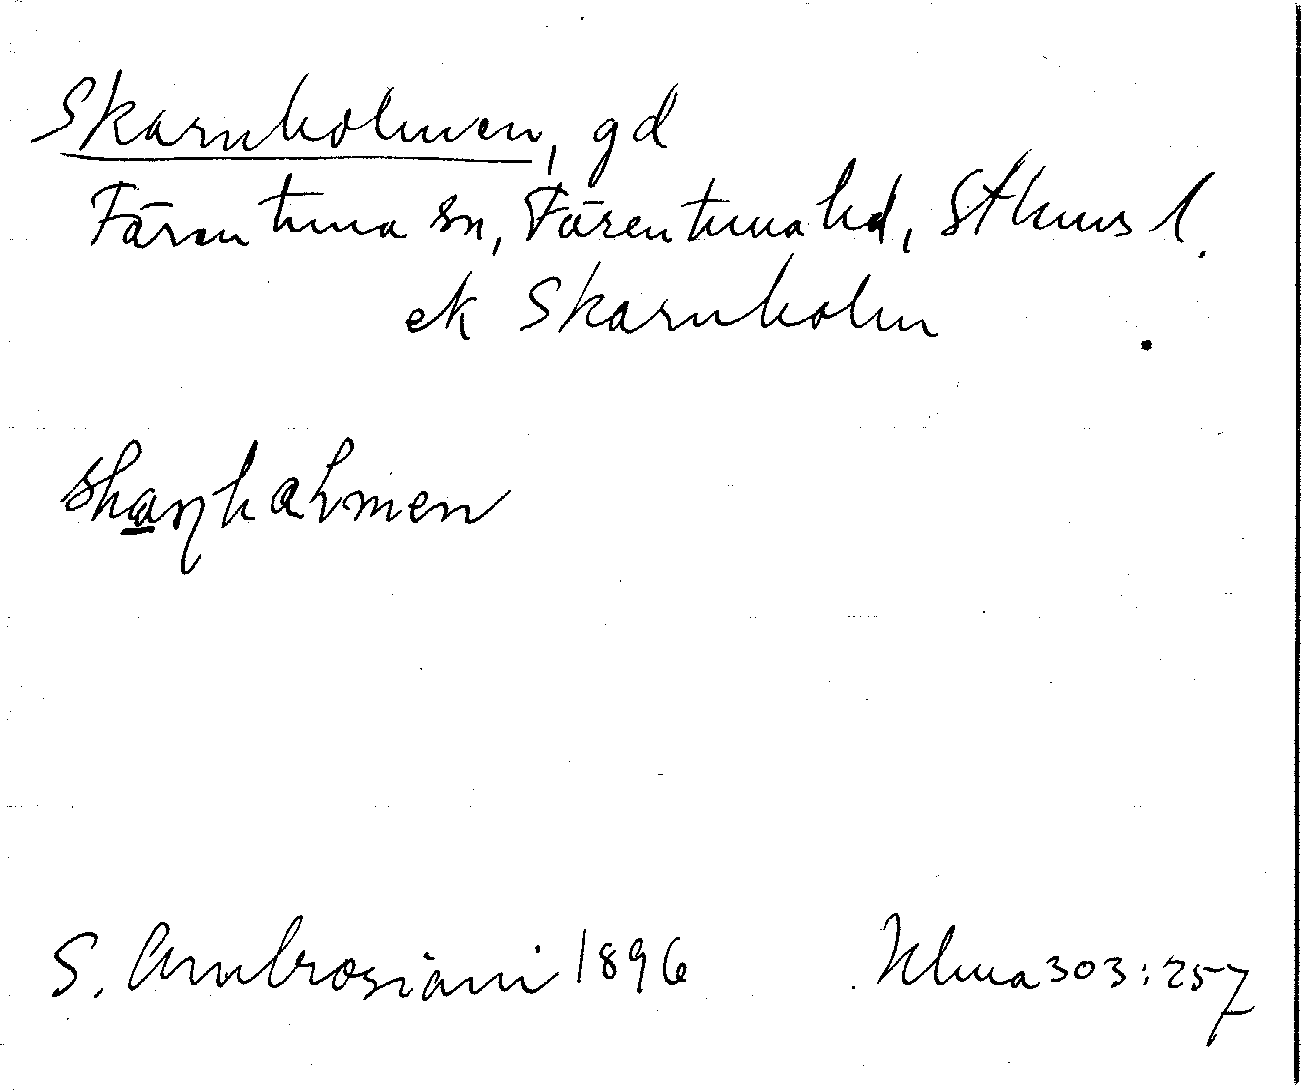 Skarnholmen, gd
Färentuna sn, Färentuna hd, Sthms l.
ek Skarnholm
skaɳhalmen
S. Ambrosiani 1896
Ulma 303:257